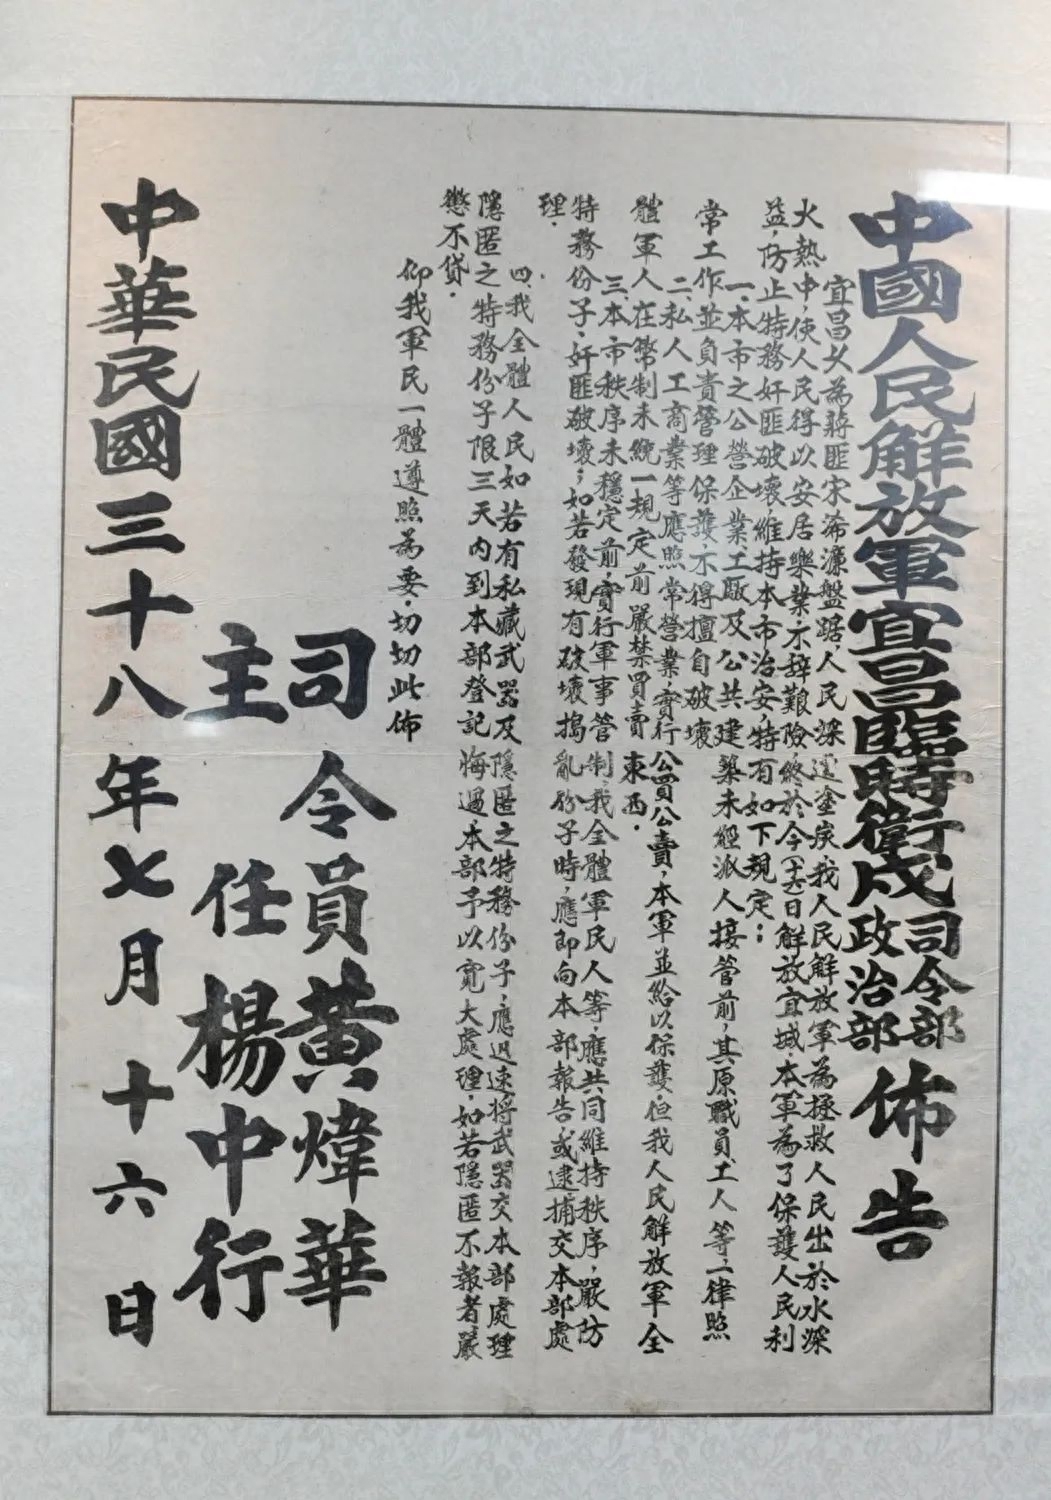 中國人民解放軍宜昌臨時衛戍司令部政治部佈告
宜昌久為蔣匪宋浠濂盤踞,人民深遭塗炭,我人民解放軍為拯救人民出於水深
火熱中,使人民得以安居樂業,不辞艱險,終於今(十六)日解放宜城.本軍為了保護人民利
益,防止特務奸匪破壞,維持本市治安,特有如下規定:
一、本市之公營企業、工廠及公共建築未經派人接管前,其原職員、工人等,一律照
常工作並負責管理保護,不得擅自破壞
二、私人工商業等應照常營業,實行公買公賣,本軍並給以保護.但我人民解放軍全
體軍人在幣制未統一規定前嚴禁買賣東西.
三、本市秩序未穩定前,實行軍事管制,我全體軍民人等,應共同維持秩序,嚴防
特務份子、奸匪破壞;如若發現有破壞搗亂份子時,應即向本部報告,或逮捕交本部處
理.
四、我全體人民如若有私藏武器及隱匿之特務份子,應迅速將武器交本部處理
隱匿之特務份子限三天內到本部登記悔過,本部予以寬大處理,如若隱匿不報者嚴
懲不貸.
仰我軍民一體遵照為要.切切此佈
司令員黃煒華
主任楊中行
中華民國三十八年七月十六日